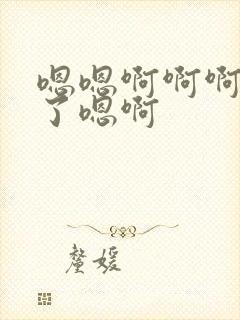 嗯嗯啊啊啊
了嗯啊
釐媛